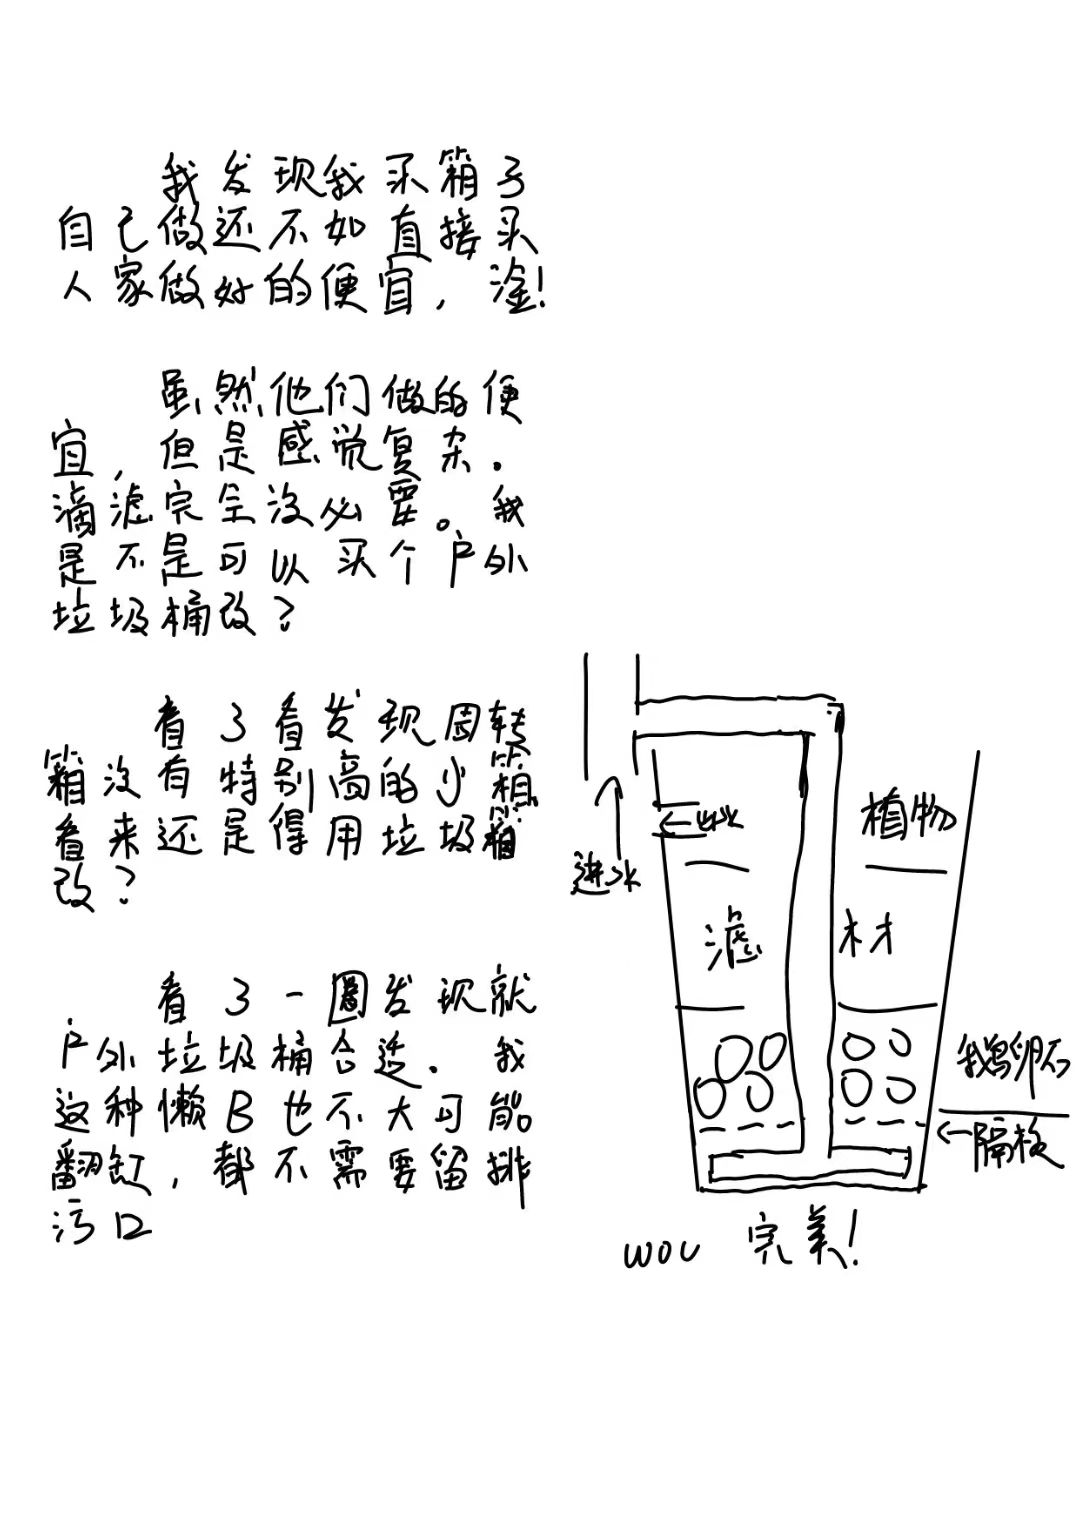 我发现我买箱子
自己做还不如直接买
人家做好的便宜,淦!
虽然他们做的便
宜,但是感觉复杂.
滴滤完全没必要。我
是不是可以买个户外
垃圾桶改?
看了看发现周转
箱没有特别高的小箱
看来还是得用垃圾箱
改?
看了一圈发现就
户外垃圾桶合适.我
这种懒B也不大可能
翻缸,都不需要留排
污口
植物
进水
滤材
鹅卵石
隔板
wou 完美!